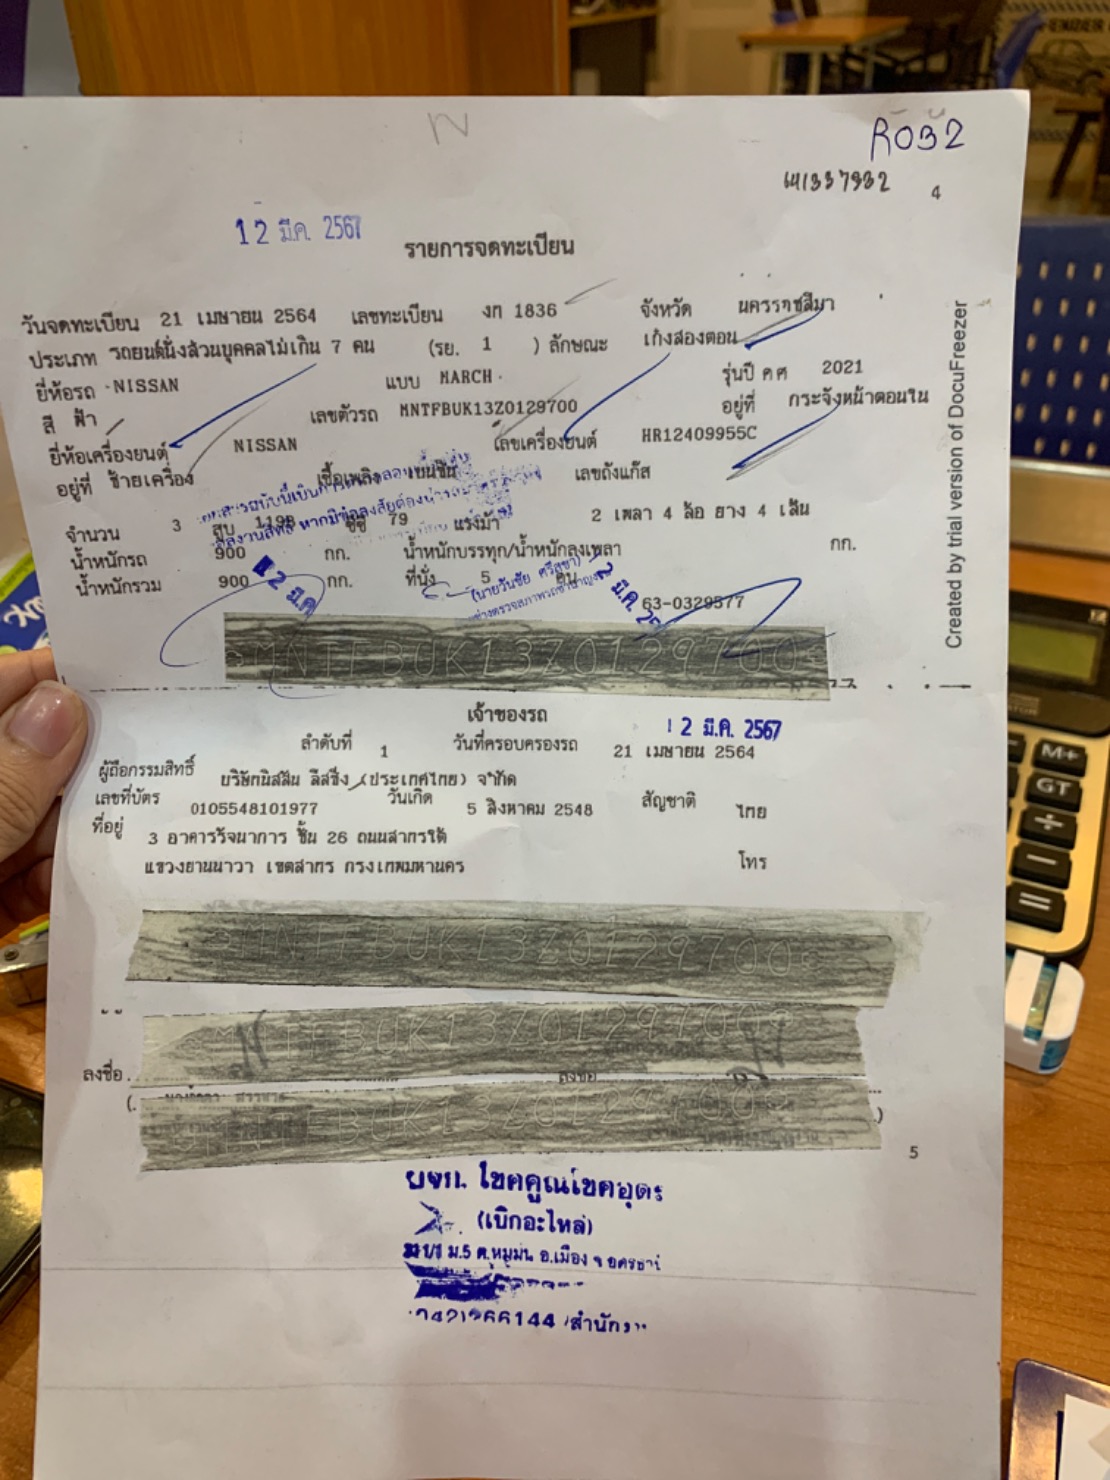 R032
4
12 มี.ค. 2567
รายการจดทะเบียน
วันจดทะเบียน 21 เมษายน 2564 เลขทะเบียน งก 1836 จังหวัด นครราชสีมา
ประเภท รถยนต์นั่งส่วนบุคคลไม่เกิน 7 คน (รย. 1 ) ลักษณะ เก๋งสองตอน
ยี่ห้อรถ NISSAN แบบ MARCH รุ่นปี คศ 2021
สี ฟ้า เลขตัวรถ MNTFBUK13Z0129700 อยู่ที่ กระจังหน้าตอนใน
ยี่ห้อเครื่องยนต์ NISSAN เลขเครื่องยนต์ HR12409955C
อยู่ที่ ซ้ายเครื่อง เชื้อเพลิง เบนซิน เลขถังแก๊ส
จำนวน 3 สูบ 1198 ซีซี 79 แรงม้า 2 เพลา 4 ล้อ ยาง 4 เส้น
น้ำหนักรถ 900 กก. น้ำหนักบรรทุก/น้ำหนักลงเพลา กก.
น้ำหนักรวม 900 กก. ที่นั่ง 5 คน
(นายวันชัย ศรีสุขา)
63-0329577
MNTFBUK13Z0129700
Created by trial version of DocuFreezer
เจ้าของรถ
12 มี.ค. 2567
ลำดับที่ 1 วันที่ครอบครองรถ 21 เมษายน 2564
ผู้ถือกรรมสิทธิ์ บริษัทนิสสัน ลีสซิ่ง (ประเทศไทย) จำกัด
เลขที่บัตร 0105548101977 วันเกิด 5 สิงหาคม 2548 สัญชาติ ไทย
ที่อยู่ 3 อาคารรัจนาการ ชั้น 26 ถนนสาทรใต้
แขวงยานนาวา เขตสาทร กรุงเทพมหานคร โทร
MNTFBUK13Z0129700
MNTFBUK13Z0129700
ลงชื่อ ลงชื่อ
MNTFBUK13Z0129700
5
หจก. โชคคูณโชคอุดร
(เบิกอะไหล่)
ม.5 ต.หมูม่น อ.เมือง จ.อุดรธานี
M+
GT
÷
−
=